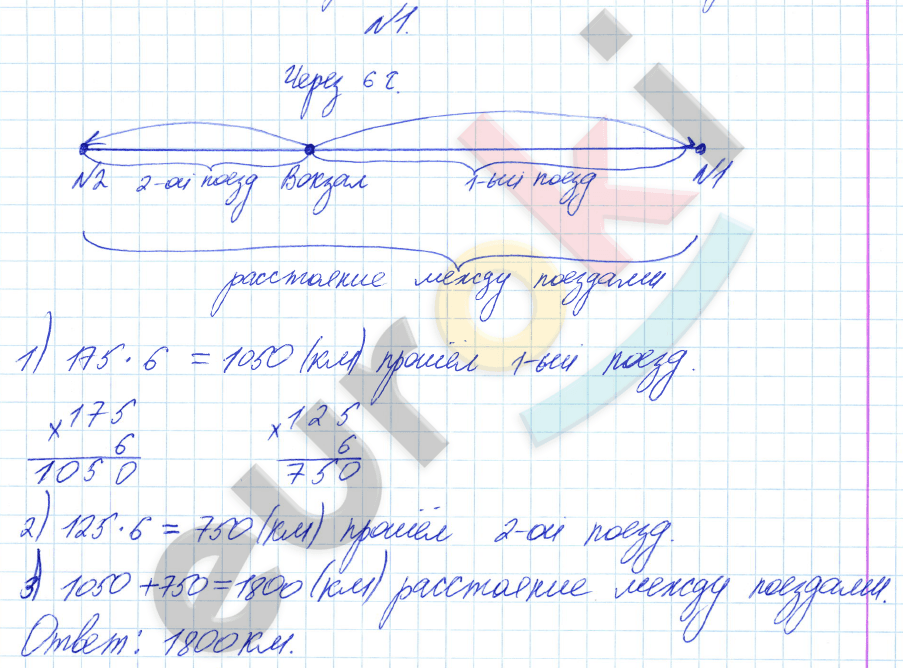 №1.
Через 6 г.
№2 2-ой поезд Вокзал 1-ый поезд №1
расстояние между поездами
1) 175 · 6 = 1050 (км) прошёл 1-ый поезд.
×175 ×125
6 6
1050 750
2) 125 · 6 = 750 (км) прошёл 2-ой поезд.
3) 1050 + 750 = 1800 (км) расстояние между поездами.
Ответ: 1800 км.
euroki